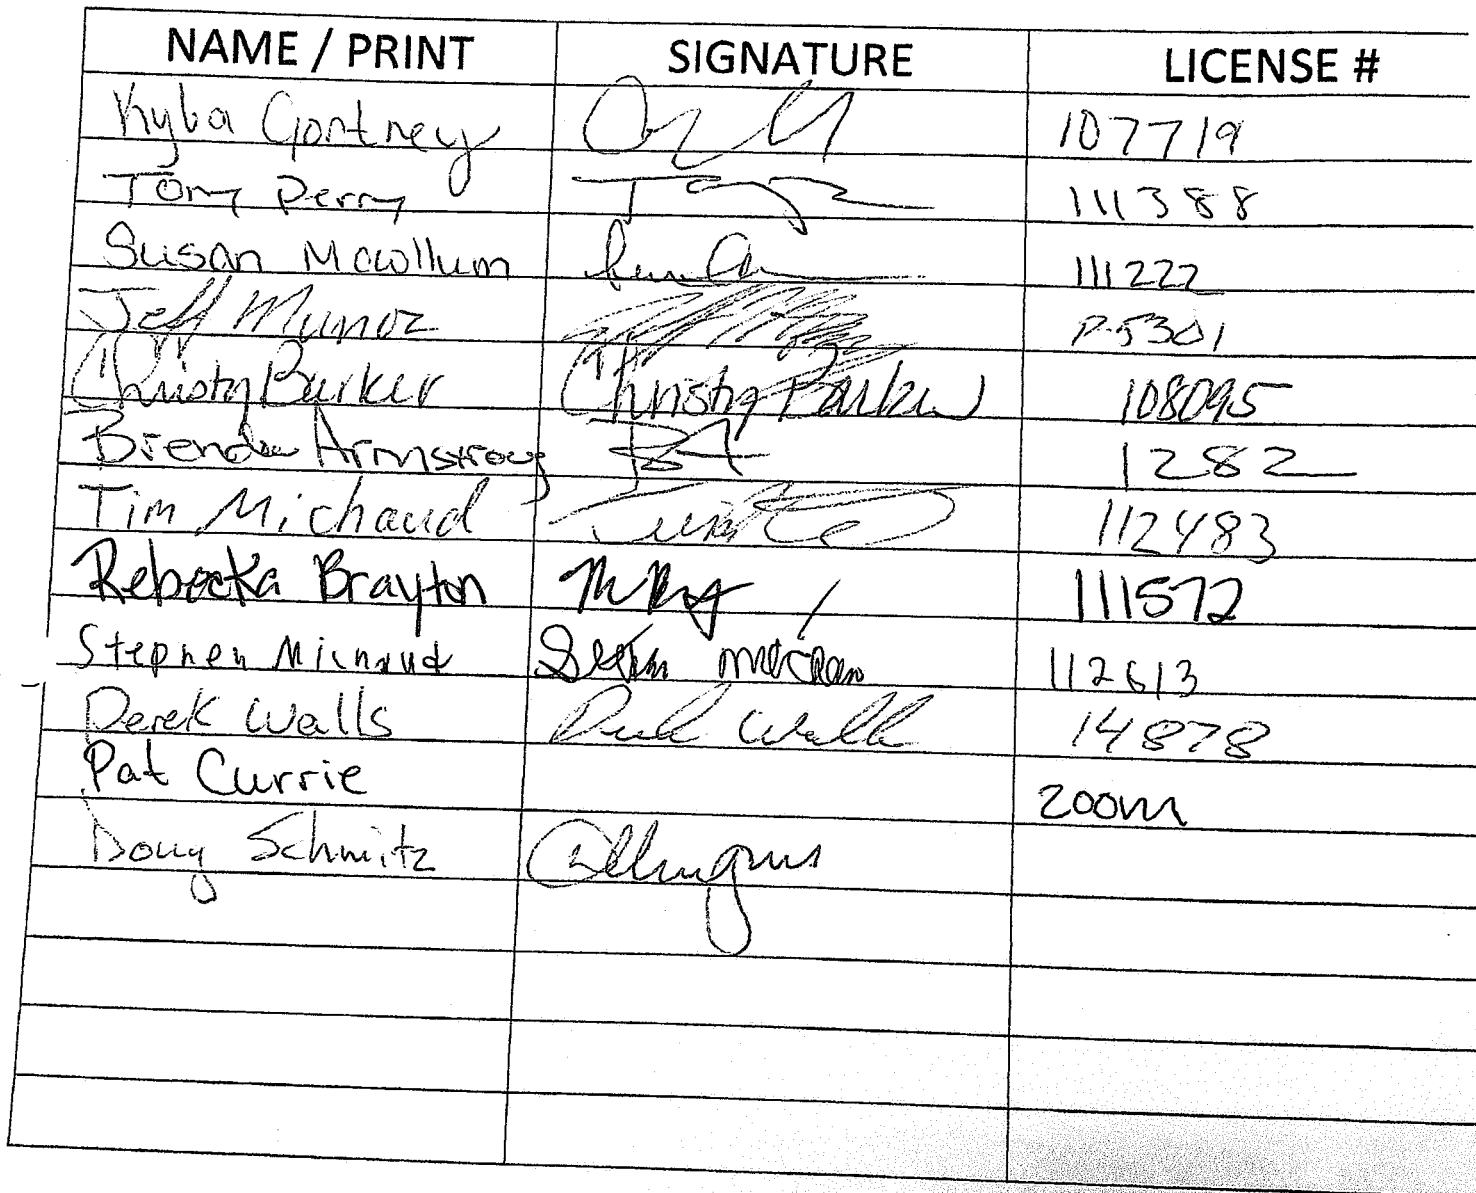 NAME / PRINT SIGNATURE LICENSE #
Kyba Gortney 107719
Tony Perry 111388
Susan McCollum 111222
Jeff Munoz P-5301
Christy Barker Christy Barker 108095
Brenda Armstrong BA 1282
Tim Michaud 112483
Rebecka Brayton 111572
Stephen Michaud 112613
Derek Walls Derek Walls 14878
Pat Currie zoom
Doug Schmitz